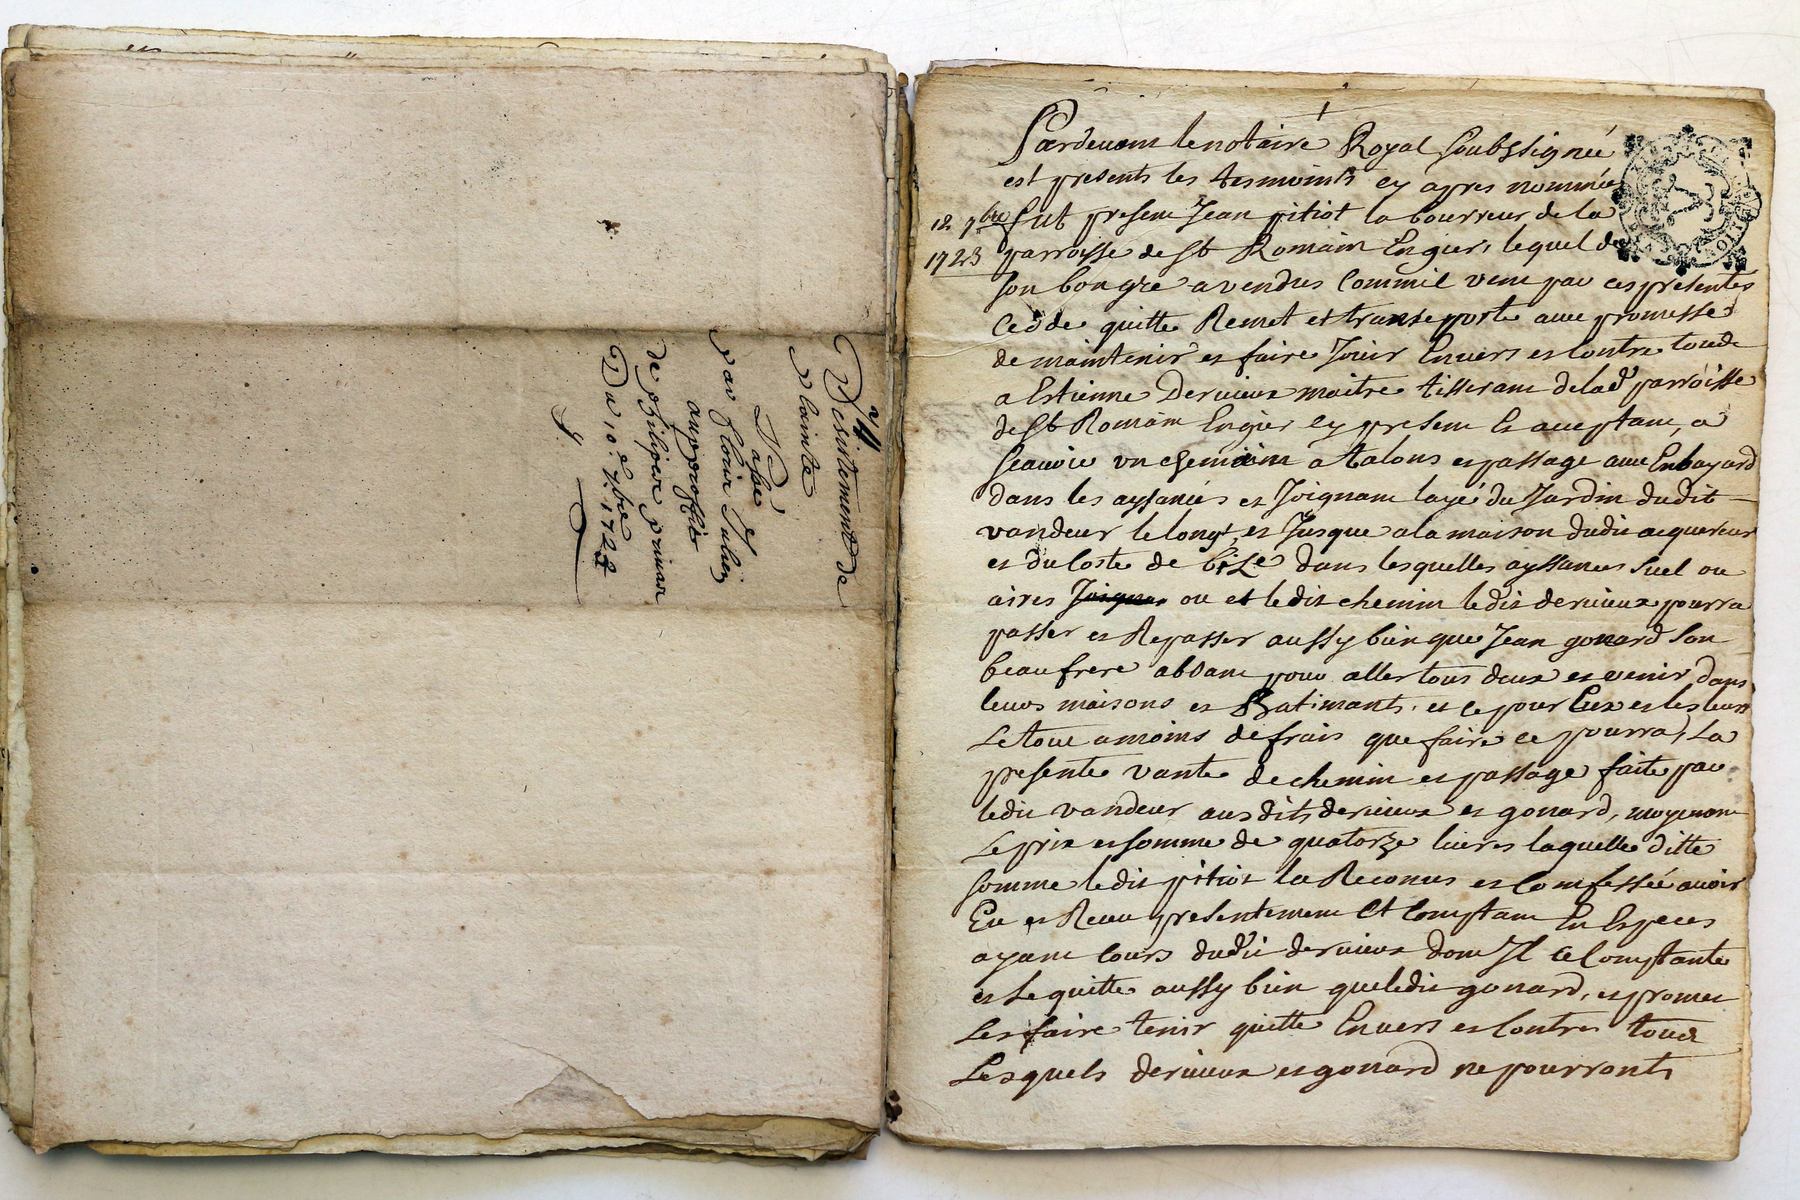 Desistement de
plainte
par
au proffit
de philipe
Du 10e 7bre 172
Pardevant le notaire Royal soubssignée
est presents les tesmoints cy apres nommées
12 7bre
1723
fut present Jean pitiot labourreur de la
parroisse de St Romain En gier, lequel de
son bon gre a vendus Comme il vent par ces presentes
Cedde quitte Remet et transeporte avec promesse
de maintenir et faire Jouir Envers et Contre tous
a Estienne Dervieux maitre tisserant de lad parroisse
de St Romain En gier cy present Et acceptant, a
scavoir un chemin a talons et passage avec
dans les aysances et Joignant du Jardin dudit
vandeur le longt et Jusque a la maison dudit acquereur
et du Coste de bise dans lesquelles ayssances suel ou
aires ou et ledit chemin ledit dervieux pourra
passer et Repasser aussy bien que Jean gonard son
beau frere absant pour aller tous deux et venir dans
leurs maisons et Batimants, et ce pour Eux et les leurs
Le tout a moins de frais que faire ce pourra, La
presente vante de chemin et passage faite par
ledit vandeur ausdits dervieux et gonard, moyenant
Le prix et somme de quatorze livres laquelle ditte
somme ledit pitiot la Reconnus et Comfessée avoir
Eu et Receu presentement Et Comptant En Especes
ayant Cours dudit dervieux dont Il ce Comptante
et Le quitte aussy bien que ledit gonard, et promet
Les faire tenir quitte Envers et Contres tous
Lesquels dervieux et gonard ne pourronts